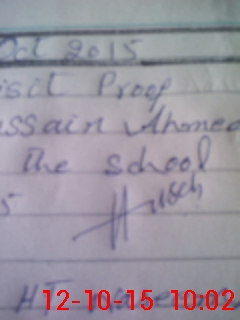 Oct 2015
isit Proof
ussain Ahmed
The school
5
HT
12-10-15 10:02